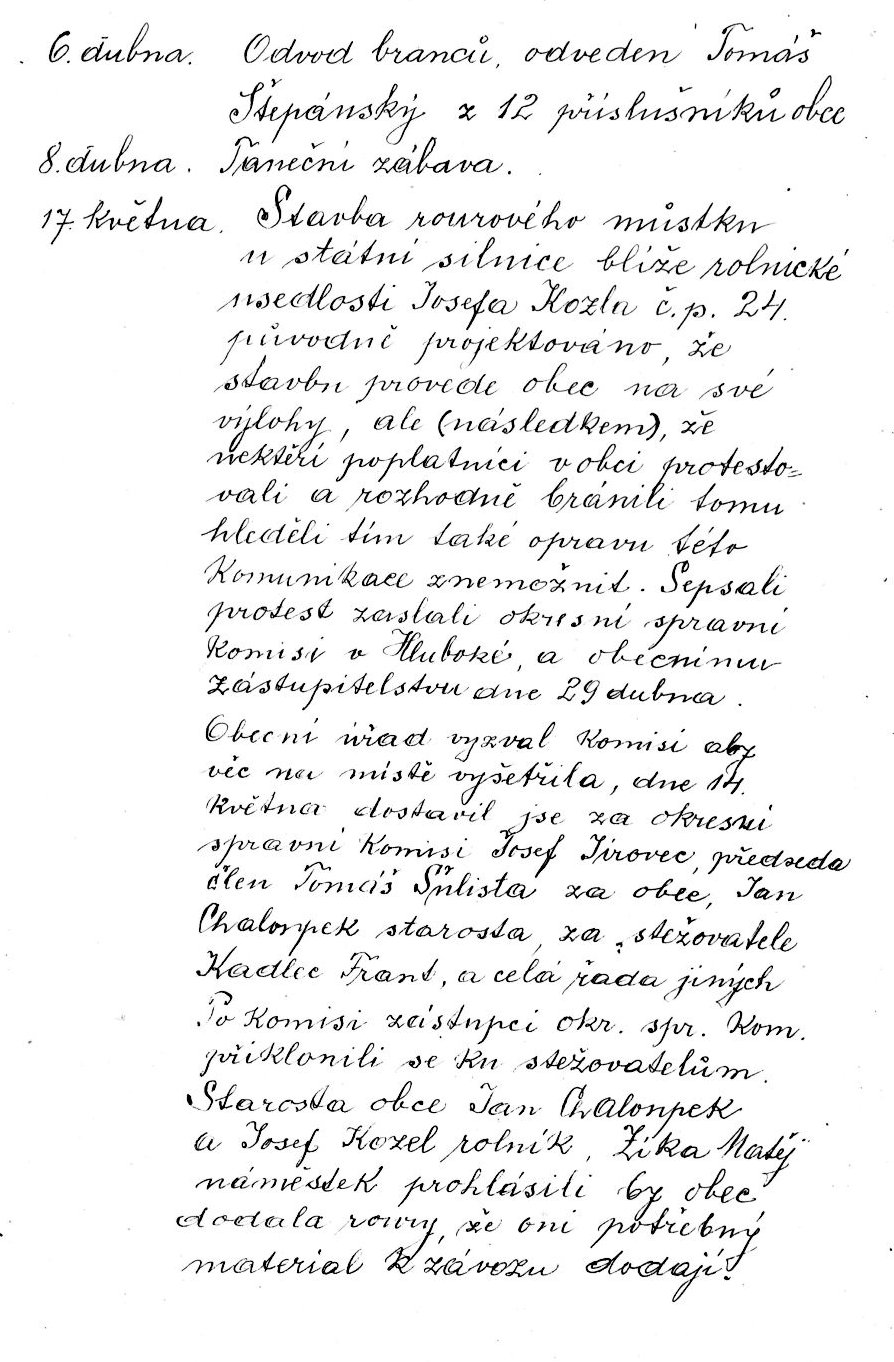 6. dubna. Odvod branců, odveden Tomáš
Štepánský z 12 příslušníků obce
8. dubna. Taneční zábava.
17. května. Stavba rourového můstku
u státní silnice blíže rolnické
usedlosti Josefa Kozla č.p. 24.
původně projektováno, že
stavbu provede obec na své
výlohy, ale (následkem), že
někteří poplatníci v obci protesto=
vali a rozhodně bránili tomu
hleděli tím také opravu této
Komunikace znemožnit. Sepsali
protest zaslali okresní spravní
Komisi v Hluboké, a obecnímu
zástupitelstvu dne 29 dubna.
Obecní úřad vyzval Komisi aby
věc na místě vyšetřila, dne 14.
Května dostavil jse za okresní
spravní Komisi Josef Jírovec, předseda
člen Tomáš Šulista za obec, Jan
Chaloupek starosta, za stežovatele
Kadlec Frant, a celá řada jiných
Po Komisi zástupci okr. spr. Kom.
přiklonili se ku stežovatelům.
Starosta obce Jan Chaloupek
a Josef Kozel rolník, Zíka Matěj
náměstek prohlásili by obec
dodala roury, že oni potřebný
material k závozu dodají.